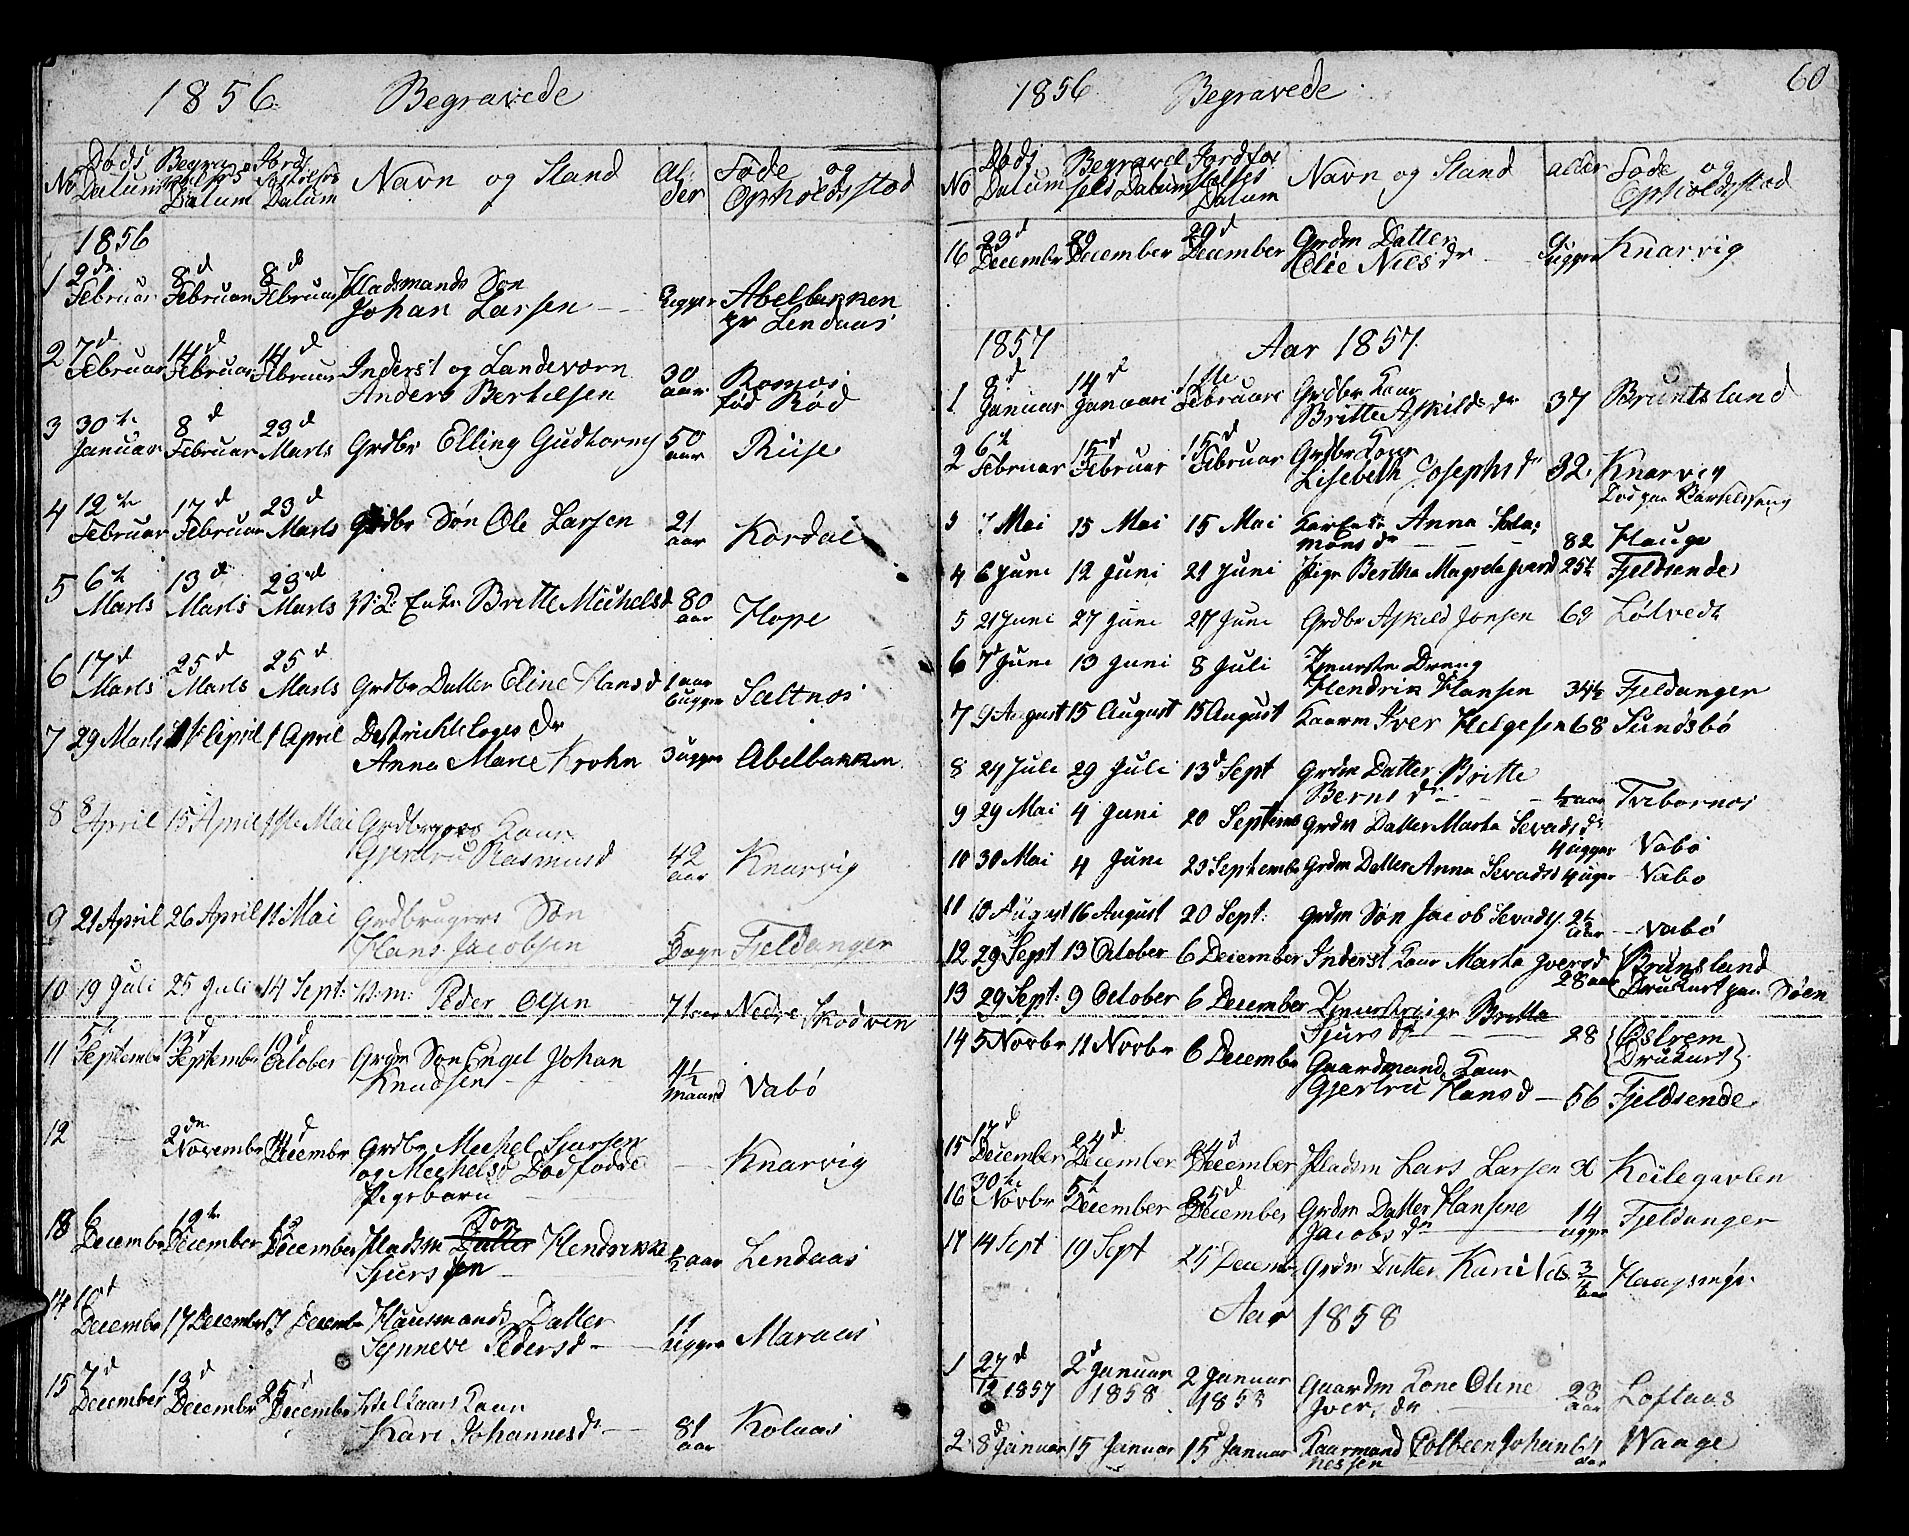 1856 Begravede
No Døds Datum Begravelses Datum Jordfæstelses Datum Navn og Stand Alder Føde og Opholdsstæd
1856
1 2den Februar 8d Februar 8d Februar Pladsmands Søn
Johan Larsen 3 ugger Abelbakken
pr Lendaas
2 7d Februar 14d Februar 14d Februar Inderst og Landeværn
Anders Bertelsen 30 aar
fød Rød
3 30te Januar 8d Februar 23d Marts Grdbr Elling Gudtorms 50 aar Riise
4 12te Februar 17d Februar 23d Marts Grdbr Søn Ole Larsen 21 aar Kordal
5 6te Marts 13d Marts 23d Marts Enke Britte Michelsd 80 aar Hope
6 17d Marts 25d Marts 25d Marts Grdbr Datter Eline Hansd 1 aar 6 ugger Saltnøs
7 29 Marts 1te April 1 April Destrichtslæges Dr
Anna Marie Krohn 3 ugger Abelbakken
8 8 April 15 April 1ste Mai Grdbrugers Kaar
Gjertru Rasmusd 42 aar Knarvig
9 21 April 26 April 11 Mai Grdbrugers Søn
Hans Jacobsen 5 Dage Fjeldanger
10 19 Juli 25 Juli 14 Sept: Peder Olsen 71 aar Nedre Skodven
11 5te September 13d September 10d October Grdm Søn Engel Johan
Knudsen 4½ Maaned Vabø
12 2den November 14d December Grdbr Mechel Sjursen
og Mechelsd Dødfødde
Pigebarn Knarvig
13 6 December 12te December December Pladsm Datter Søn Hendrikke
Sjurs sen ½ aar Lendaas
14 10d December 17 December 17 December Huusmands Datter
Synneve Pedersd 11 ugger Maraas
15 7d December 13d December 25d December
Kari Johannesdr 81 aar Kolaas
1856 Begravede 60
No Døds Datum Begravelses Datum Jordfæstelses Datum Navn og Stand alder Føde og Opholdsstæd
16 23d December 29 December 29d December Grdm Datter
Elie Nielsdr ugger Knarvig
1857 Aar 1857
1 8d Januar 14d Januari 1ste Februari Grdbr Kaar
Britte Askildsdr 37 Bruntsland
2 6te Februar 15d Februar 15d Februar Grdbr Kaar
Lisebeth Josephsdr 32. Knarvig
3 7 Mai 15 Mai 15 Mai Kar Enke Anna Sala-
monsdr 82 Hauge
4 6 Juni 12 Juni 21 Juni Pige Bertha 25½ Fjeldsende
5 21 Juni 27 Juni 27 Juni Grdbr Askild Jonsen 63 Løtvedt
6 7d Juni 13 Juni 8 Juli Tjeneste Dreng
Hendrik Hansen 34½ Fjeldanger
7 9 August 15 August 15 August Kaarm Iver Helgesen 68 Sundsbø
8 24 Juli 29 Juli 13d Sept Grdm Datter Britte
Bernsdr ½ aar
9 29 Mai 4 Juni 20 Septembr Grdm Datter Marta Sevadsdr
4 ugger Vabø
10 30 Mai 4 Juni 23 September Grdm Datter Anna Sevadsd 4 uger Vabø
11 10 August 16 August 20 Sept: Grdm Søn Jacob Sevads. 2½ aar Vabø
12 29 Sept 13 October 6 December Inderst Kaar Marta Iversd Brunsland
28 aar Druknet paa Søen
13 29 Sept: 9 October 6 December Tjenestepige Britte
Sjursdr 28 Østrem
Druknet
14 5 Novbr 11 Novbr 6 December Gaardmands Kaar
Gjertru Hansd 56 Fjeldsende
15 17d December 24d December 24d December Pladsm Lars Larsen Keilegavlen
16 30te Novbr 5te December 25d December Grdm Datter Hansine
Jacobsdr 14 ugger Fjeldanger
17 14 Sept 19 Sept 25 Decemb Grdm Datter Kari 3/4 aar
Aar 1858
1 27d/12 1857 2d Januar 1858 2 Januar 1858 Gaardm Kone Oline
Iversdr 28 aar Loftaas
2 8d Januar 15 Januar 15d Januar Kaarmand Colbeen Johan
nessen 64 aar Waage